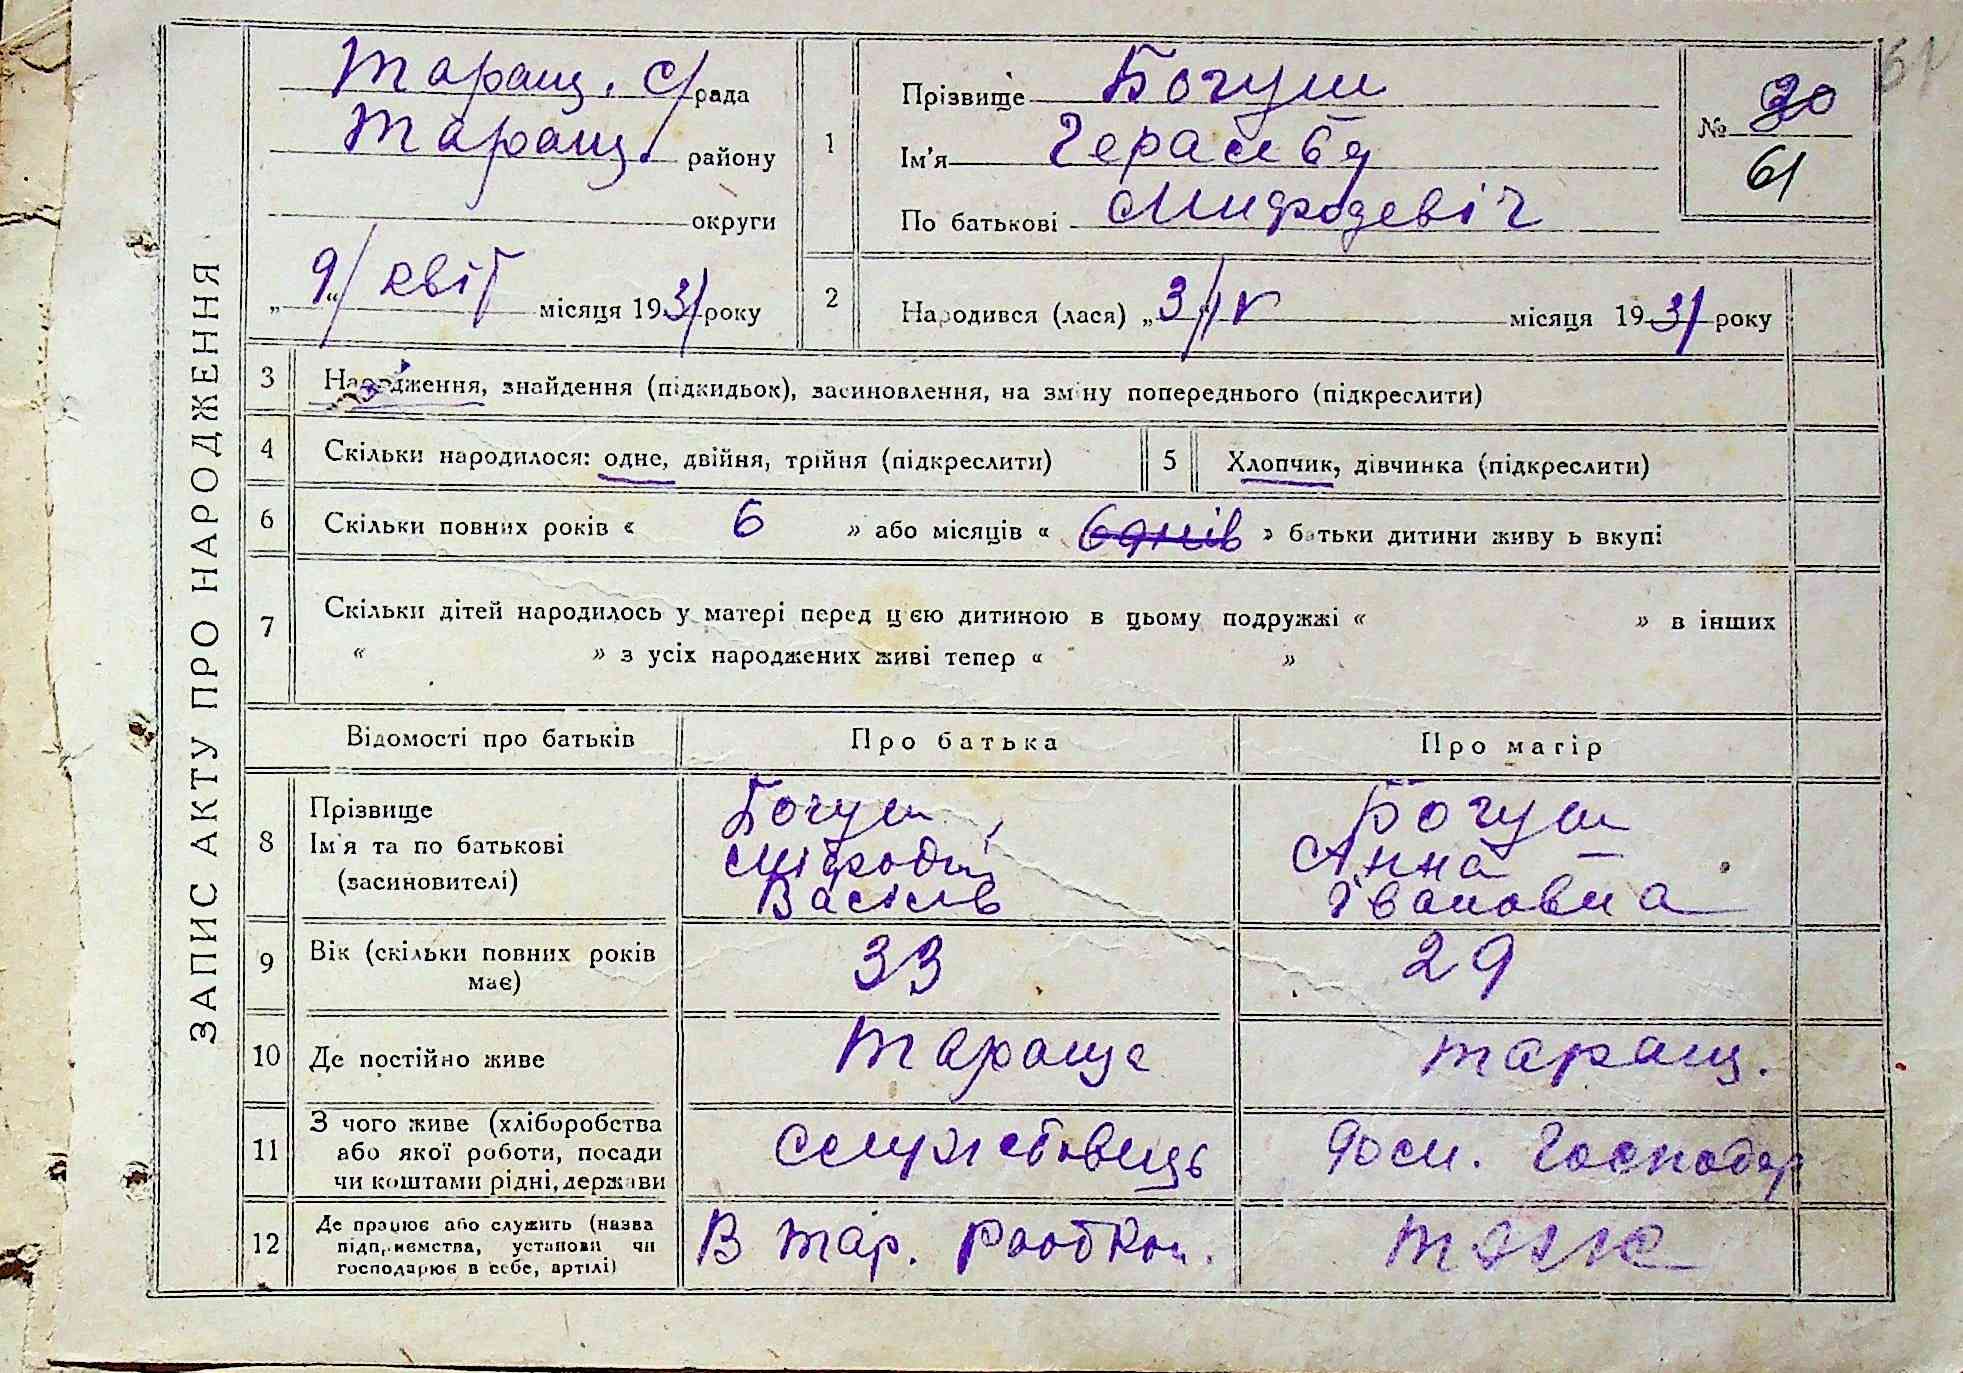 ЗАПИС АКТУ ПРО НАРОДЖЕННЯ
Таращ. С/рада
Таращ. району
округи
„9“ квіт місяця 1931 року
1
Прізвище Богуш
Ім'я
По батькові Мифодевіч
№ 30
61
61
2
Народився (лася) „3“/IV місяця 1931 року
3
Народження, знайдення (підкидьок), засиновлення, на зміну попереднього (підкреслити)
4
Скільки народилося: одне, двійня, трійня (підкреслити)
5
Хлопчик, дівчинка (підкреслити)
6
Скільки повних років « 6 » або місяців « 6 днів » батьки дитини живуть вкупі
7
Скільки дітей народилось у матері перед цією дитиною в цьому подружжі « » в інших
« » з усіх народжених живі тепер « »
Відомості про батьків
Про батька
Про матір
8
Прізвище
Ім'я та по батькові
(засиновителі)
Богуш
Міфодій
Васілів
Богуш
Анна
Івановна
9
Вік (скільки повних років
має)
33
29
10
Де постійно живе
Тараща
Таращ.
11
З чого живе (хліборобства
або якої роботи, посади
чи коштами рідні, держави
Службовець
Дом. Господар
12
Де працює або служить (назва
підприємства, установи чи
господарює в себе, артілі)
В Тар.
тоже